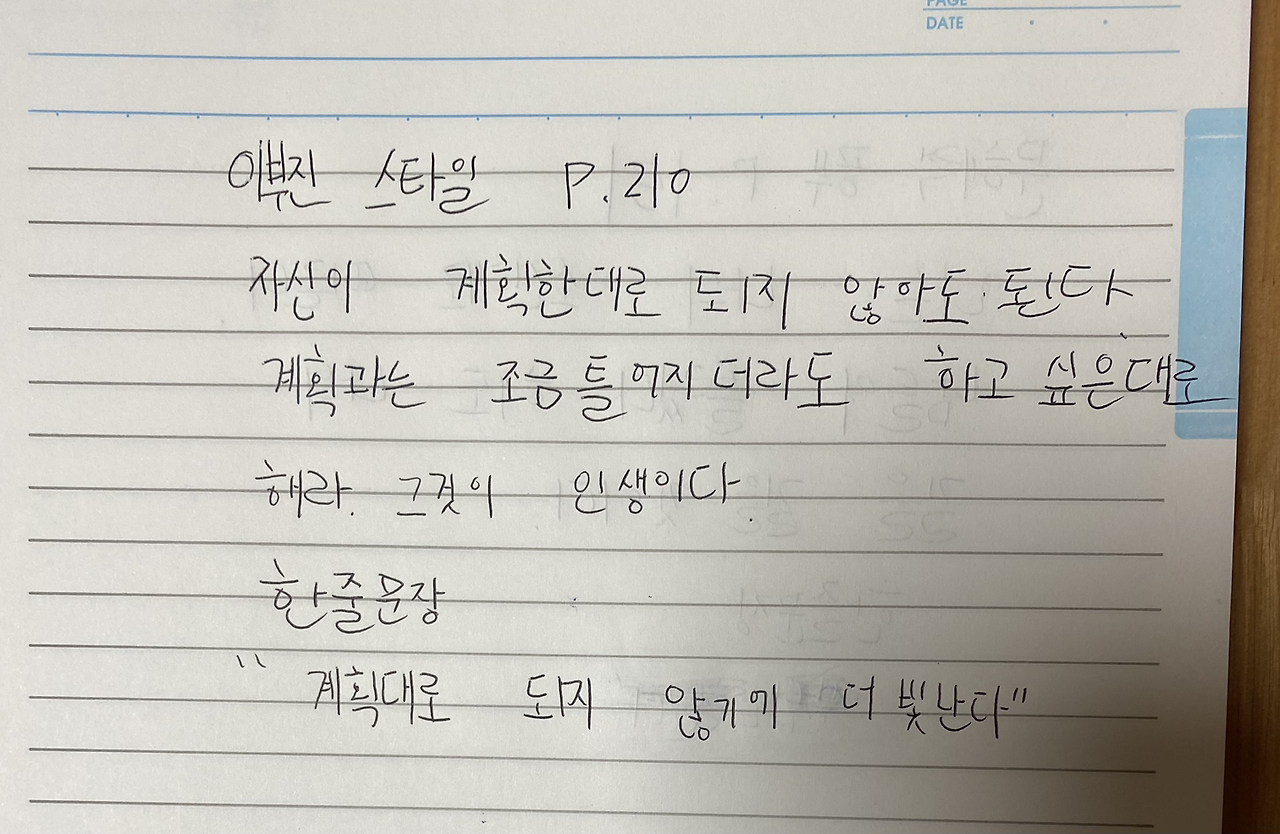 PAGE
DATE
이부진 스타일 P.210
자신이 계획한대로 되지 않아도 된다
계획과는 조금 틀어지더라도 하고 싶은대로
해라. 그것이 인생이다.
한줄문장
"계획대로 되지 않기에 더 빛난다"